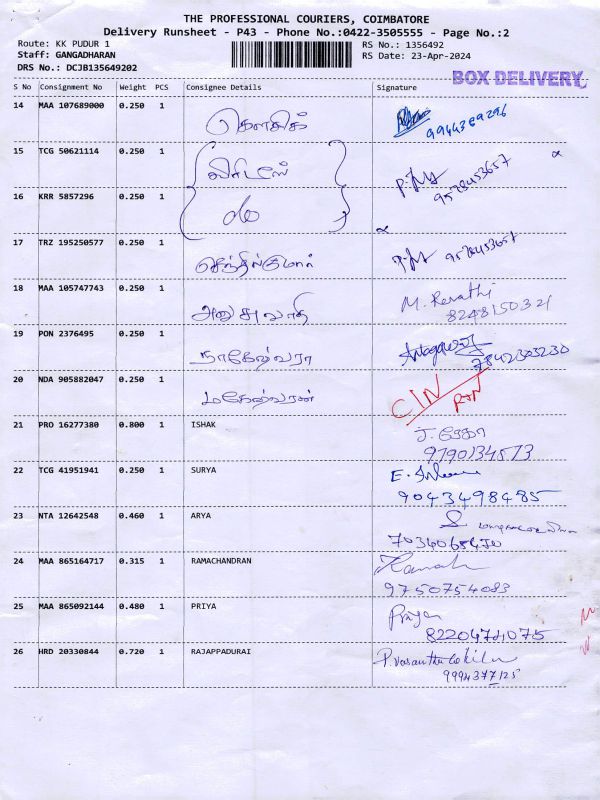 THE PROFESSIONAL COURIERS, COIMBATORE
Delivery Runsheet - P43 - Phone No.:0422-3505555 - Page No.:2
Route: KK PUDUR 1 RS No.: 1356492
Staff: GANGADHARAN RS Date: 23-Apr-2024
DRS No.: DCJB135649202
BOX DELIVERY
S No Consignment No Weight PCS Consignee Details Signature
14 MAA 107689000 0.250 1 கௌசிக்
9944389296
15 TCG 50621114 0.250 1
9578453657
16 KRR 5857296 0.250 1 do
17 TRZ 195250577 0.250 1 செந்தில்குமார் 9578453657
18 MAA 105747743 0.250 1 அனுசுயாதி M. Revathi
8248150321
19 PON 2376495 0.250 1 நாகேஷ்வரா
7842303230
20 NDA 905882047 0.250 1 மகேஷ்வரன் CIN RTN
21 PRO 16277380 0.800 1 ISHAK J. ரேகா
9790134573
22 TCG 41951941 0.250 1 SURYA E.
9043498485
23 NTA 12642548 0.460 1 ARYA
24 MAA 865164717 0.315 1 RAMACHANDRAN
9750754083
25 MAA 865092144 0.480 1 PRIYA Priya
8220474075
26 HRD 20330844 0.720 1 RAJAPPADURAI P. Vasantha Kokila
9994377125